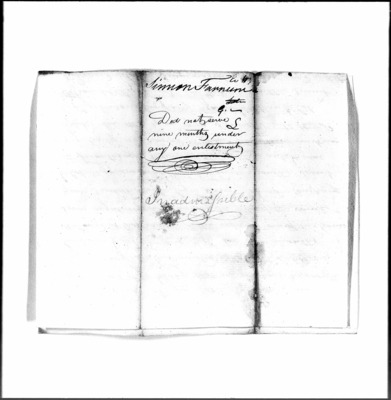 Simeon Farnum
Did not serve
nine months under
any one enlistment
Inadmissible